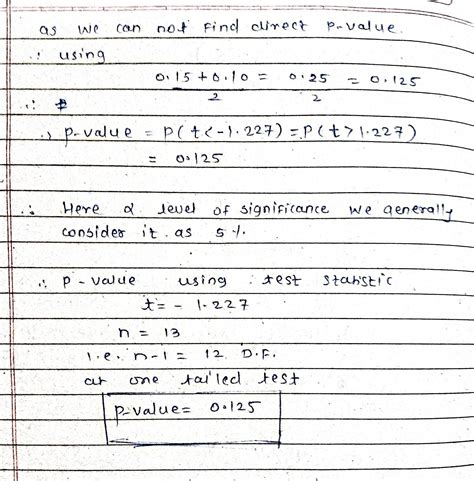 as we can not find direct p-value.
∴ using
0.15 + 0.10 / 2 = 0.25 / 2 = 0.125
∴
∴ p-value = P(t<-1.227) = P(t>1.227)
= 0.125
∴ Here α level of significance we generally
consider it as 5%.
∴ p-value using test statistic
t = -1.227
n = 13
i.e. n-1 = 12 D.F.
at one tailed test
p-value = 0.125